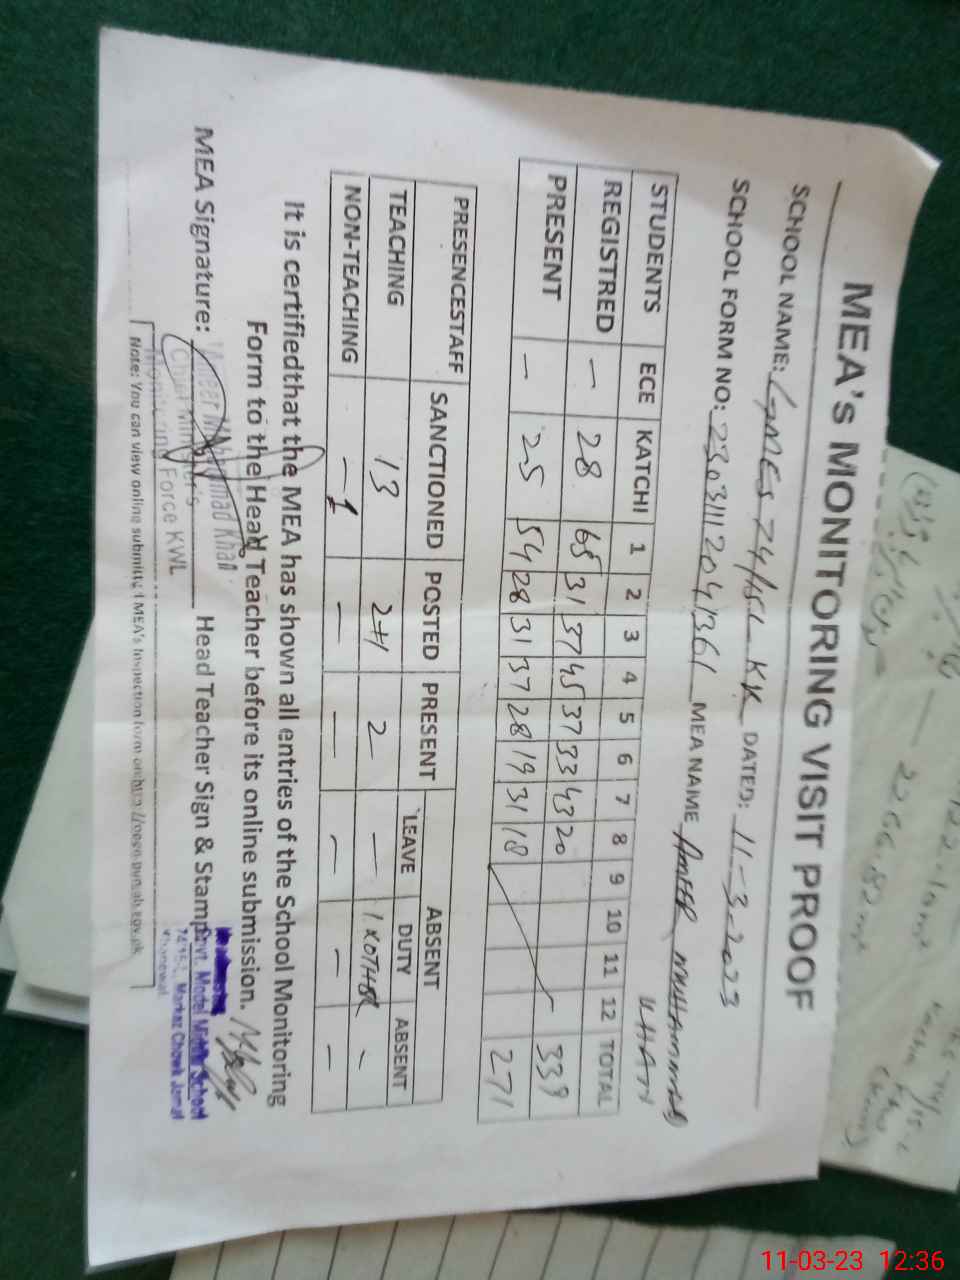 MEA's MONITORING VISIT PROOF
SCHOOL NAME: GMES 74/15L KK DATED: 11-3-2023
SCHOOL FORM NO: 23031112041361 MEA NAME AMEER MUHAMMAD KHAN
STUDENTS ECE KATCHI 1 2 3 4 5 6 7 8 9 10 11 12 TOTAL
REGISTRED — 28 65 31 37 45 37 33 43 20 339
PRESENT — 25 54 28 31 37 28 19 31 18 271
PRESENCESTAFF SANCTIONED POSTED PRESENT ABSENT
LEAVE DUTY ABSENT
TEACHING 13 2+1 2 — 1 KOTHER -
NON-TEACHING -1 — — — — —
It is certifiedthat the MEA has shown all entries of the School Monitoring
Form to the Head Teacher before its online submission.
MEA Signature: Head Teacher Sign & Stamp
Ameer Muhammad Khan
Chief Minister's
Monitoring Force KWL
Govt. Model Middle School
74/15-L Markaz Chowk Jamal
Khanewal
Note: You can view online submitted MEA's Inspection form on:http://open.punjab.gov.pk
11-03-23 12:36